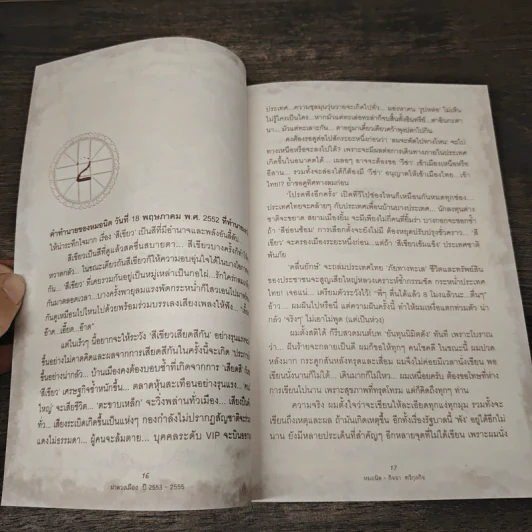 ๔
คำทำนายของหมอนิด วันที่ 18 พฤษภาคม พ.ศ. 2552 ที่ทำนาย
ให้น่าระทึกใจมาก เรื่อง 'สีเขียว' เป็นสีที่มีอำนาจและพลังอันลี้ลับ
สีเขียวเป็นสีที่ดูแล้วสดชื่นสบายตา... สีเขียวบางครั้งก็ทำให้
หวาดกลัว... ในขณะเดียวกันสีเขียวก็ให้ความอบอุ่นใจได้ในบาง
กัน... 'สีเขียว' ที่เคยรวมกันอยู่เป็นหมู่เหล่าเป็นกอไผ่... รักใคร่กลม
กันมาตลอดเวลา...บางครั้งพายุลมแรงพัดกระหน่ำก็ไสวเอนไปมา
กันดูเหมือนไปไหนไปด้วยพร้อมร่วมบรรเลงเสียงเพลงให้ฟัง...
อ๊าด...เอี๊ยด...อ๊าด"
แต่ในเร็วๆ นี้อยากจะให้ระวัง 'สีเขียวเสียดสีกัน' อย่างรุนแรง
ขึ้นอย่างไม่คาดคิดและผลจากการเสียดสีกันในครั้งนี้จะเกิด
ขึ้นอย่างน่ากลัว... บ้านเมืองคงต้องบอบช้ำที่เกิดจากการ 'เสียดสี'
'สีเขียว' เศรษฐกิจช้ำหนักขึ้น... ตลาดหุ้นสะเทือนอย่างรุนแรง...
ใหญ่' จะเสียชีวิต... 'ตะขาบเหล็ก' จะวิ่งพล่านทั่วเมือง... เสียงปืน
ทั่ว... เสียงระเบิดเกิดขึ้นเป็นแห่งๆ กองกำลังไม่ปรากฏสัญชาติจะ
แดงไม่ธรรมดา... ผู้คนจะล้มตาย... บุคคลระดับ VIP จะบิน
16
ผ่าดวงเมือง ปี 2553 - 2555
ประเทศ...ความชุลมุนวุ่นวายจะเกิดไปทั่ว... มองหาคน 'รูปหล่อ' ไม่เห็น
ไม่รู้ใครเป็นใคร...
นา... มัวแต่ทะเลาะกัน... ตาอยู่มาเดี๋ยวเดียวคว้าพุงปลาไปกิน
คงต้องรอดูต่อไปสักระยะหนึ่งก่อนว่า ลมจะพัดไปทางไหน จะไป
ทางเหนือหรือจะลงไปใต้? เพราะจะมีผลต่อการเดินทางภายในประเทศ
เกิดขึ้นในอนาคตได้... เผลอๆ อาจจะต้องขอ 'วีซ่า' เข้าเมืองเหนือหรือ
อีสาน... รวมทั้งจะล่องใต้ก็ต้องมี 'วีซ่า' อนุญาตให้เข้าเมืองไทย... เข้า
ไทย!? ย้ำขอดูทิศทางลมก่อน
'โปรดฟังอีกครั้ง' เปิดทีวีไปช่องไหนก็เหมือนกันหมดทุกช่อง...
ประเทศไทยจะคล้ายๆ กับประเทศเพื่อนบ้านบางประเทศ... นักลงทุนต่าง
ชาติจะขยาด สยามเมืองยิ้ม จะมีเพียงไม่กี่คนที่ยิ้มร่า บางกอกจะชอกช้ำ
ถ้า 'สีอ่อนซ้อม' การเลือกตั้งจะยังไม่มี ต้องหยุดปรับปรุงชั่วคราว... 'สี
เขียว' จะครองเมืองระยะหนึ่งก่อน...แต่ถ้า 'สีเขียวเข้มแข็ง' ประเทศชาติ
พ้นภัย
"คลื่นยักษ์' จะถล่มประเทศไทย 'ภัยทางทะเล' ชีวิตและทรัพย์สิน
ของประชาชนจะสูญเสียใหญ่หลวงเคราะห์ซ้ำกรรมซัด กระหน่ำประเทศ
ไทย! เจอแน่... เตรียมตัวระวังไว้! "พี่ๆ ตื่นได้แล้ว ๑ โมงแล้วนะ...ตื่นๆ"
อ้าว... ผมฝันไปหรือนี่ แต่ความฝันครั้งนี้ ทำให้ผมเครียดแทบตัวตน ว่า
กลัว 'จริงๆ' ไม่เอาไม่พูด (แต่เป็นห่วง)
ผมตั้งสติได้ ก็รีบสวดมนต์บท 'ยันทุนนิมิตตัง' ทันที เพราะโบราณ
ว่า... ฝันร้ายจะกลายเป็นดี ผมก็ขอให้ทุกๆ คนโชคดี ในขณะนี้ ผมปวด
หลังมาก กระดูกสันหลังทรุดและเสื่อม ผมจึงไม่ค่อยมีเวลานั่งเขียน พอ
เขียนนั่งนานก็ไม่ได้... เดินมากก็ไม่ได้... ผมเหนื่อยมากครับ ต้องขอโทษที่ห่าง
การเขียนไปนาน เพราะสุขภาพที่ทรุดโทรม แต่ก็คิดถึงทุกๆ ท่าน
ความจริง ผมตั้งใจว่าจะเขียนให้ละเอียดทุกแง่ทุกมุม รวมทั้งจะ
เขียนถึงเหตุและผล ถ้ามันเกิดเหตุขึ้น อีกทั้งเรื่องรัฐบาลนี้ 'พัง' อยู่ได้อีกไม่
นาน ยังมีหลายประเด็นที่สำคัญๆ อีกหลายจุดที่ไม่ได้เขียน เพราะผมนั่ง
17
หมอนิด - กิจจา ทวีกุลกิจ